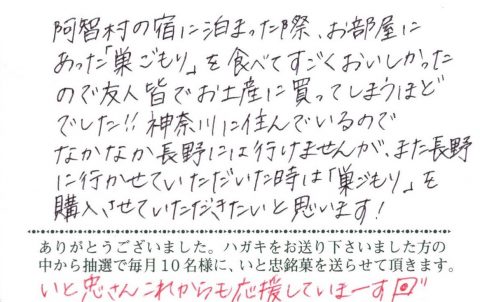 阿智村の宿に泊まった際、お部屋に
あった「巣ごもり」を食べてすごくおいしかった
ので友人皆でお土産に買ってしまうほど
でした!!神奈川に住んでいるので
なかなか長野には行けませんが、また長野
に行かせていただいた時は「巣ごもり」を
購入させていただきたいと思います!
ありがとうございました。ハガキをお送り下さいました方の
中から抽選で毎月10名様に、いと忠銘菓を送らせて頂きます。
いと忠さんこれからも応援していまーす